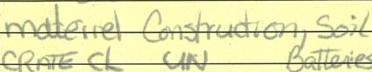 materiel Construction, Soil
CRATE CL UN Batteries